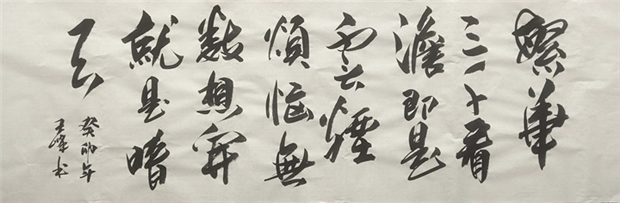 繁華
三千看
澹即是
雲煙
煩惱無
數想开
就是晴
天
癸卯年
王